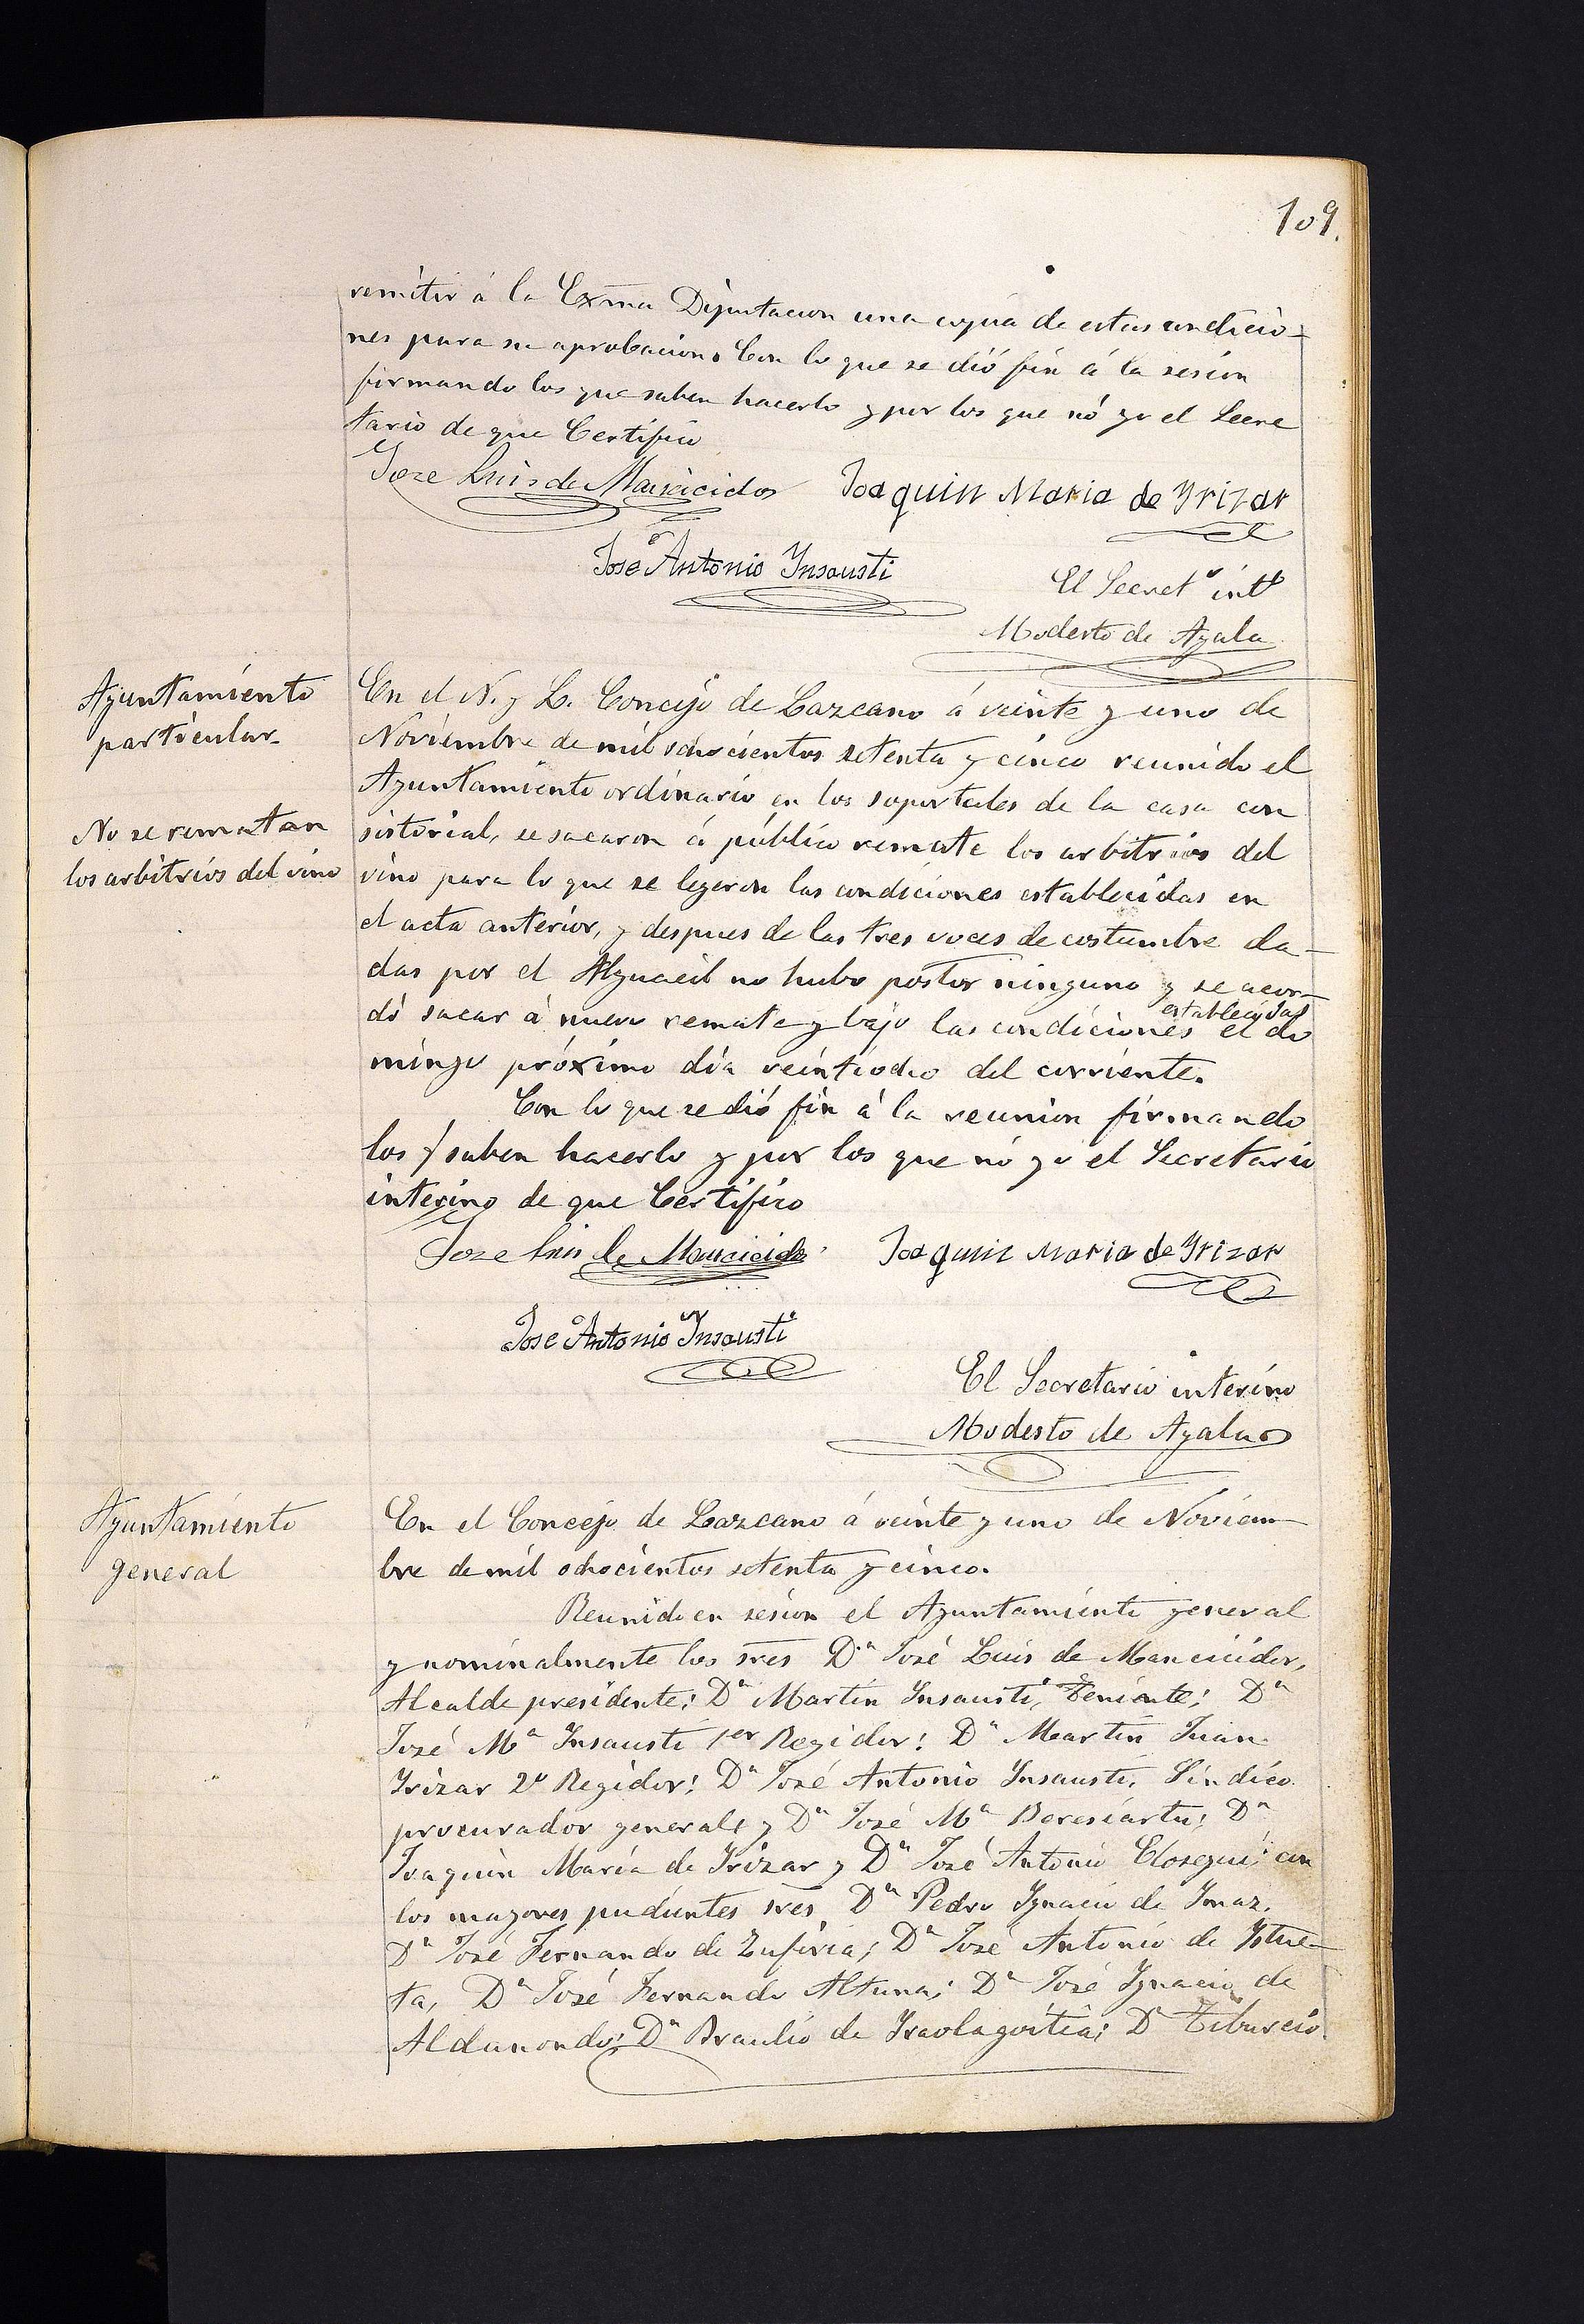 109.
remitir á la Exma Diputacion una copia de estas condicio-
nes para su aprobacion. Con lo que se dió fin á la sesion
firmando los que saben hacerlo y por los que nó yo el Secre
tario de que Certifico
Joze Luis de Mancicidor Joaquin Maria de Yrizar
Jose Antonio Ynsausti
El Secretº intº
Modesto de Ayala
Ayuntamiento
particular.
No se rematan
los arbitrios del vino
En el N. y L. Concejo de Lazcano á veinte y uno de
Noviembre de mil ochocientos setenta y cinco reunido el
Ayuntamiento ordinario en los soportales de la casa con
sistorial, se sacaron á público remate los arbitrios del
vino para lo que se leyeron las condiciones establecidas en
el acta anterior, y despues de las tres voces de costumbre da-
das por el Alguacil no hubo postor ninguno y se acor-
dó sacar á nuevo remate y bajo las condiciones establecidas el do
mingo próximo dia veintiocho del corriente.
Con lo que se dió fin á la reunion firmando
los saben hacerlo y por los que nó yo el Secretario
interino de que Certifico
Joze Luis de Mancicidor Joaquin Maria de Yrizar
Jose Antonio Ynsausti
El Secretario interino
Modesto de Ayala
Ayuntamiento
general
En el Concejo de Lazcano á veinte y uno de Noviem-
bre de mil ochocientos setenta y cinco.
Reunido en sesion el Ayuntamiento general
y nominalmente los sres Dn José Luis de Mancicidor,
Alcalde presidente; Dn Martin Insausti, Teniente; Dn
José Mª Insausti 1er Regidor; Dn Martin Juan
Yrizar 2º Regidor; Dn José Antonio Insausti, Síndico
procurador general; y Dn José Mª Beresiartu; Dn
Joaquin María de Yrizar y Dn José Antonio Elosegui; con
los mayores pudientes sres Dn Pedro Ygnacio de Ymaz,
Dn José Fernando de Zufiria; Dn José Antonio de Iztue-
ta, Dn José Fernando Altuna; Dn José Ygnacio de
Aldanondo; Dn Braulio de Yraolagoitia; Dn Tiburcio